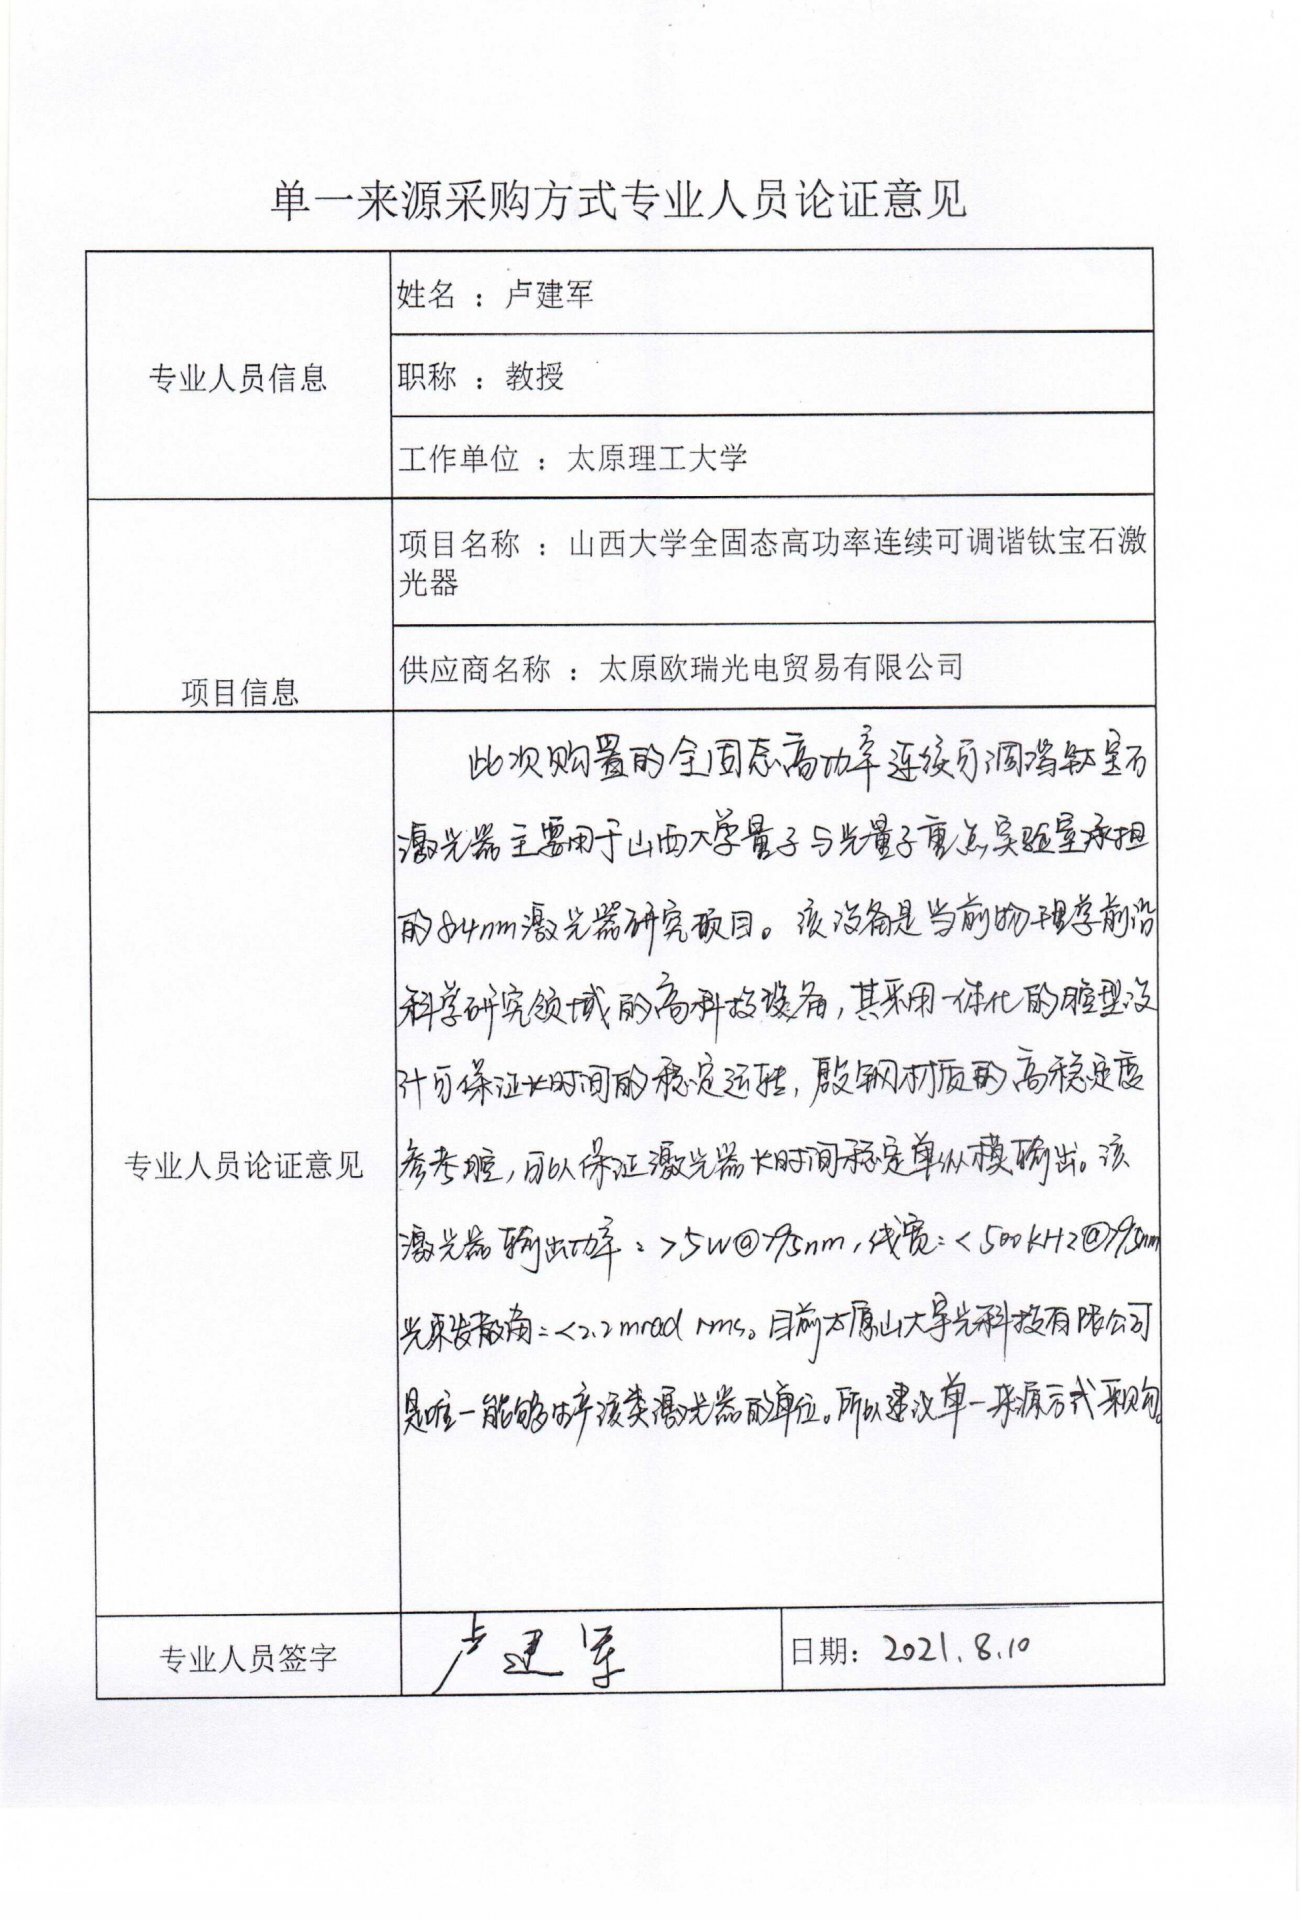 单一来源采购方式专业人员论证意见
专业人员信息
姓名 ：卢建军
职称 ：教授
工作单位 ：太原理工大学
项目信息
项目名称 ：山西大学全固态高功率连续可调谐钛宝石激
光器
供应商名称 ：太原欧瑞光电贸易有限公司
专业人员论证意见
此次购置的全固态高功率连续可调谐钛宝石
激光器主要用于山西大学量子与光量子重点实验室承担
的84nm激光器研究项目。该设备是当前物理学前沿
科学研究领域的高科技设备，其采用一体化的腔型设
计可保证长时间的稳定运转，殷钢材质的高稳定度
参考腔，可以保证激光器长时间稳定单纵模输出。该
激光器输出功率：>5W@795nm，线宽：<500kHz@795nm
光束发散角：<2.2mrad rms。目前太原山大宇光科技有限公司
是唯一能够生产该类激光器的单位。所以建议单一来源方式采购。
专业人员签字
卢建军
日期：2021.8.10